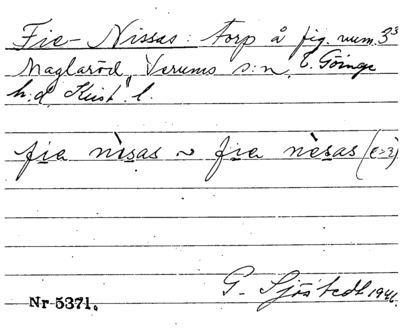 Fie-Nissas: torp å fig. num. 3³
Maglaröd, Verums s:n, V. Göinge
h:d, Krist. l.
fi̲a nìs̲as ~ fi̲a nès̲as (e>i)
G. Sjöstedt 1946.
Nr 5371.